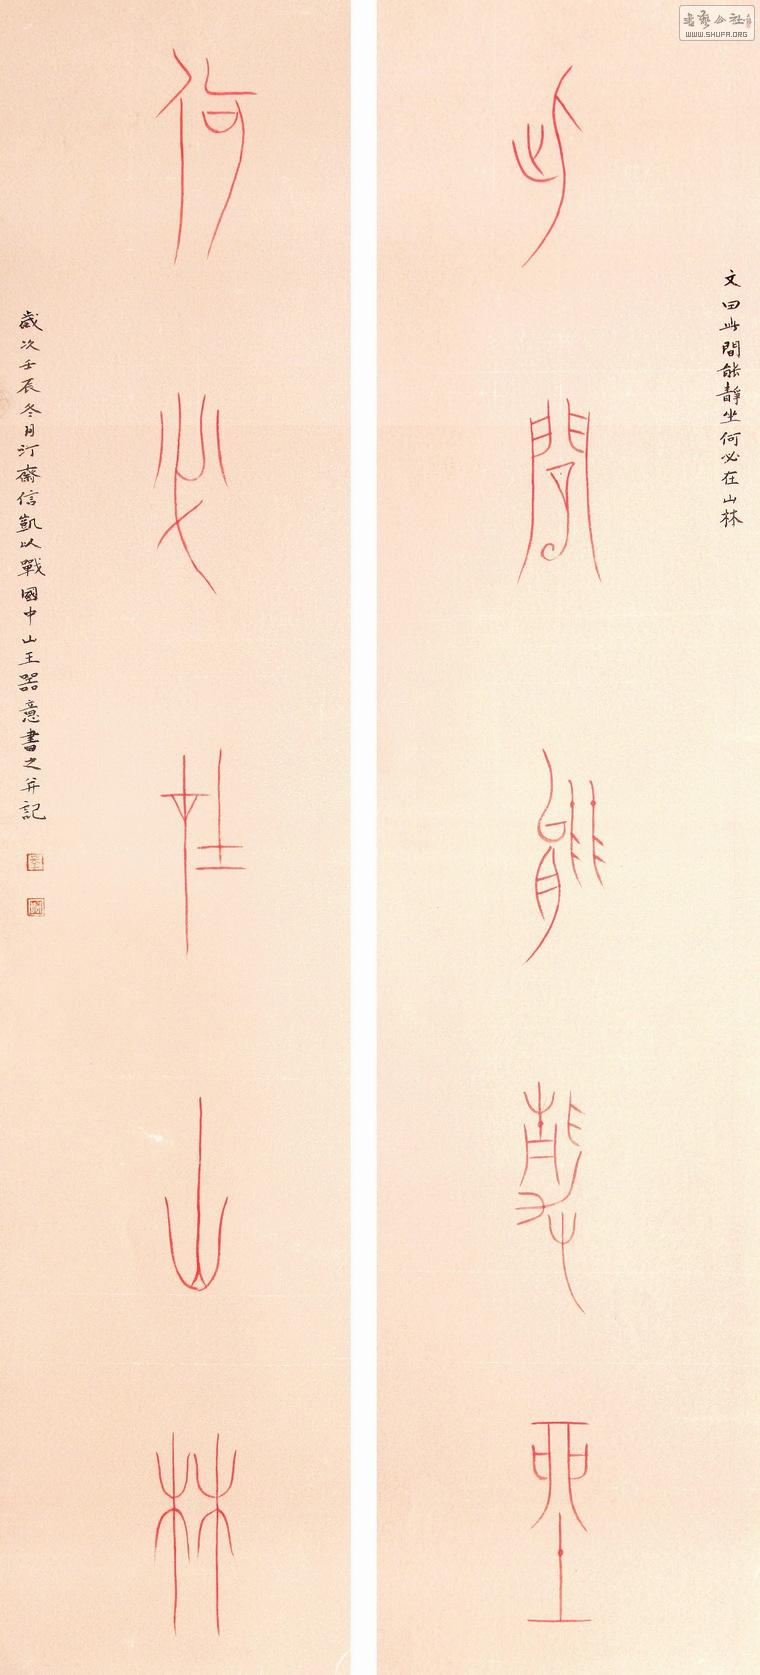 此間能靜坐
何必在山林
文曰此間能靜坐何必在山林
歲次壬辰冬月汀齋信凱以戰國中山王器意書之并記
書藝公社
WWW.SHUFA.ORG